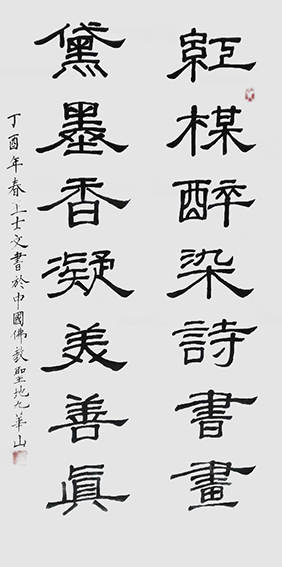 紅楳醉染詩書畫
黛墨香凝美善眞
丁酉年春上士文書於中國佛教聖地九華山